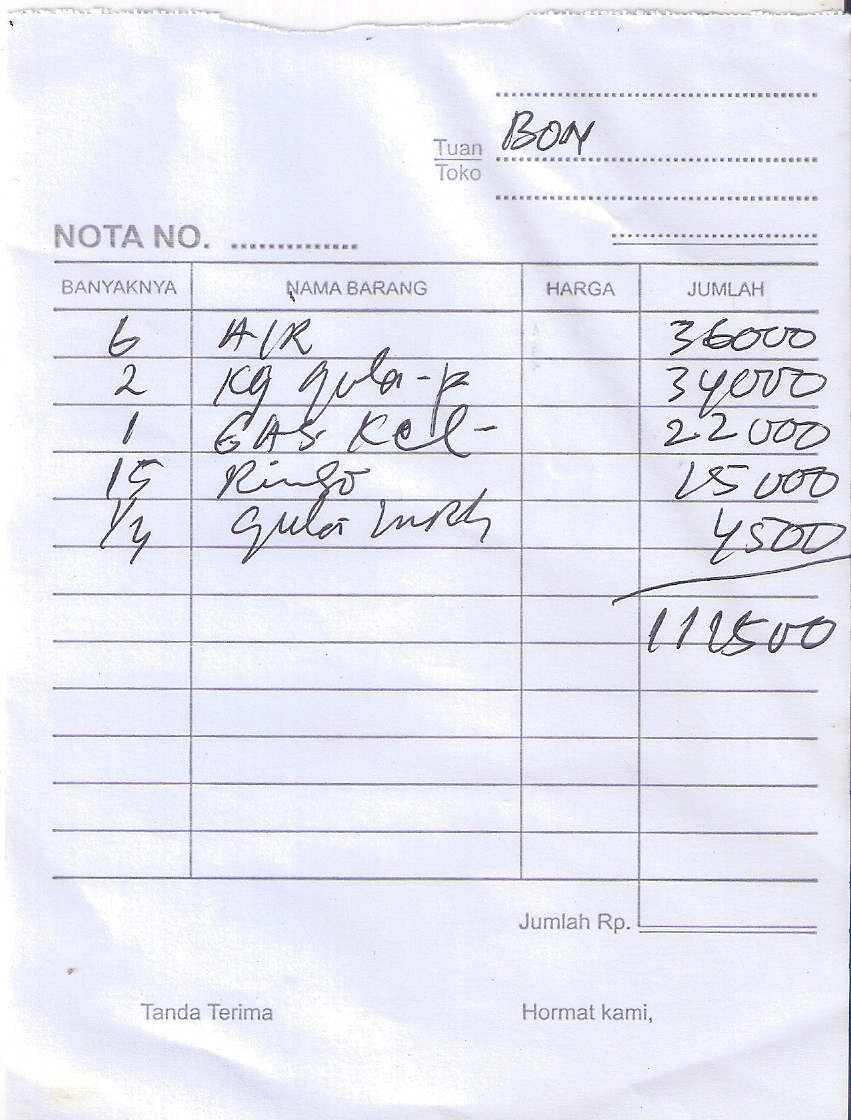 BON
Tuan
Toko
NOTA NO. ..............
BANYAKNYA NAMA BARANG HARGA JUMLAH
6 AIR 36000
2 Kg gula-p 34000
1 GAS Kcl- 22000
15 15000
1/4 gula mRh 4500
111500
Jumlah Rp.
Tanda Terima Hormat kami,